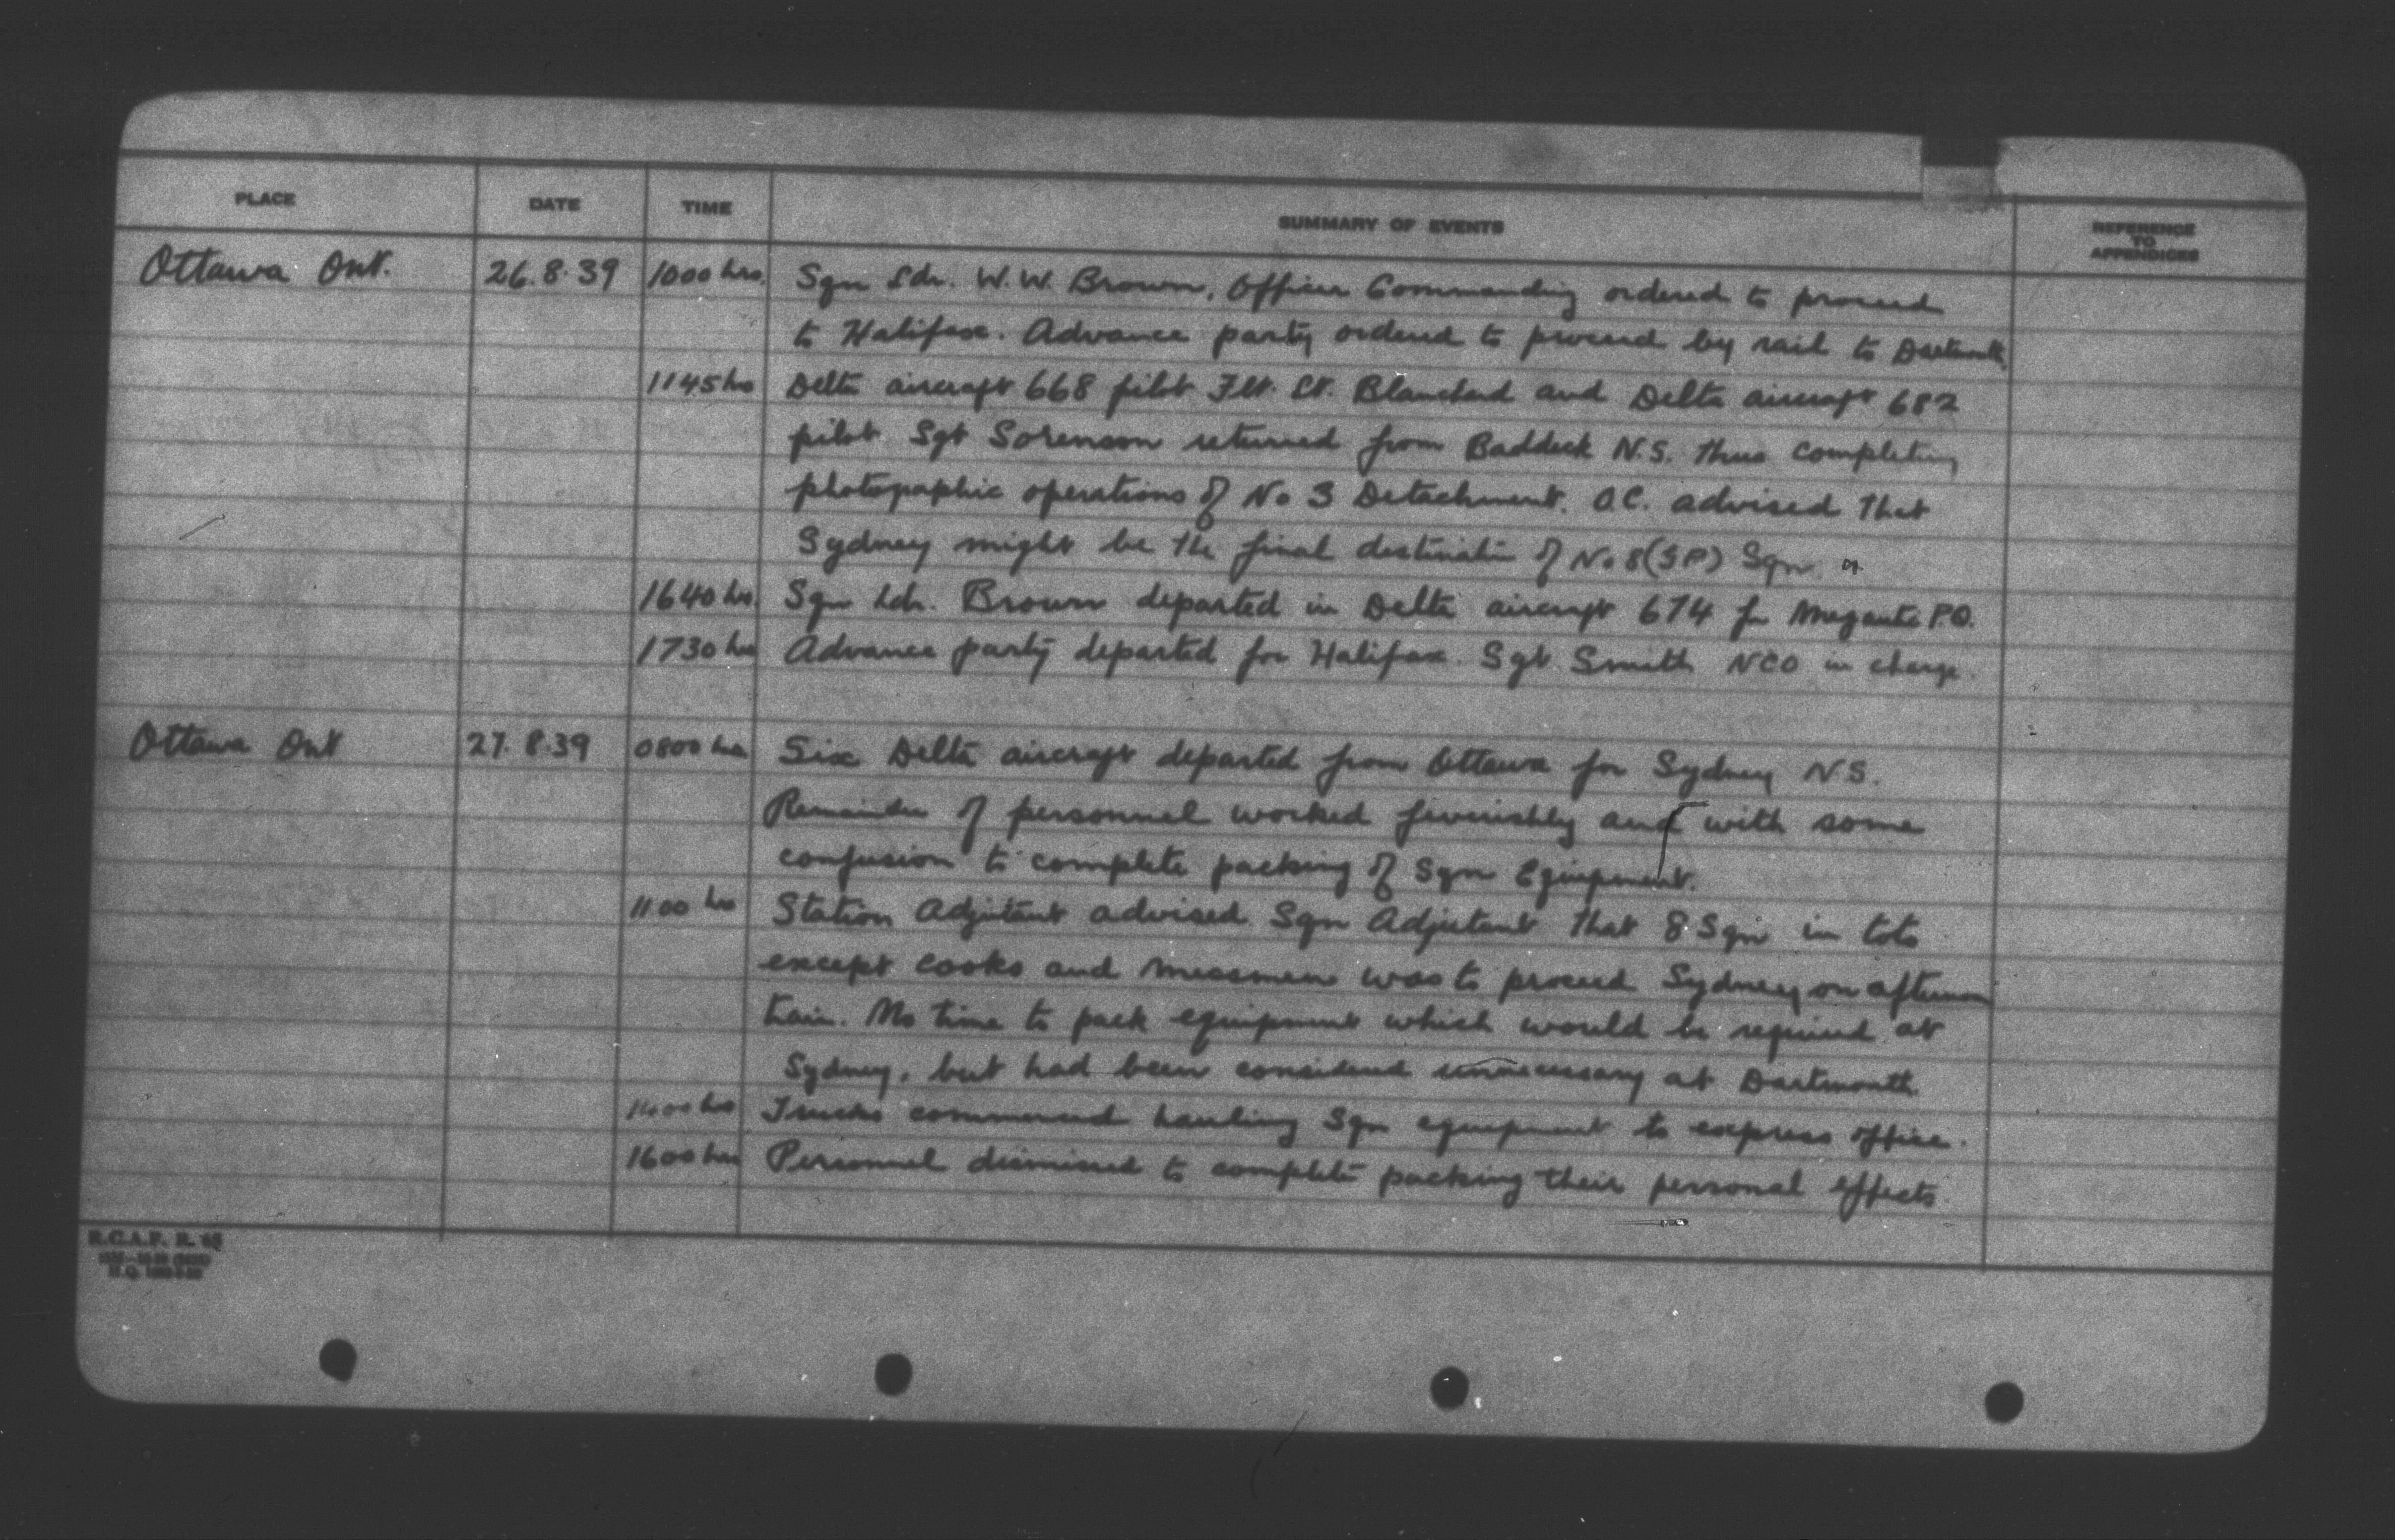 PLACE DATE TIME SUMMARY OF EVENTS REFERENCE TO APPENDICES
Ottawa Ont. 26.8.39 1000 hrs. Sqn Ldr. W.W. Brown, Officer Commanding ordered to proceed
to Halifax. Advance party ordered to proceed by rail to Dartmouth
1145 hrs Delta aircraft 668 pilot Flt. Lt. Blanchard and Delta aircraft 682
pilot Sgt Sorenson returned from Baddeck N.S. thus completing
photographic operations of No 3 Detachment. O.C. advised that
Sydney might be the final destination of No 8(GP) Sqn.
1640 hrs. Sqn Ldr. Brown departed in Delta aircraft 674 for Megantic P.Q.
1730 hrs Advance party departed for Halifax. Sgt Smith NCO in charge.
Ottawa Ont 27.8.39 0800 hrs Six Delta aircraft departed from Ottawa for Sydney N.S.
Remainder of personnel worked feverishly and with some
confusion to complete packing of Sqn Equipment.
1100 hrs Station Adjutant advised Sqn Adjutant that 8 Sqn in toto
except cooks and messmen was to proceed Sydney on afternoon
train. No time to pack equipment which would be required at
Sydney, but had been considered unnecessary at Dartmouth.
1400 hrs Trucks commenced hauling Sqn equipment to express office.
1600 hrs Personnel dismissed to complete packing their personal effects.
R.C.A.F. R.